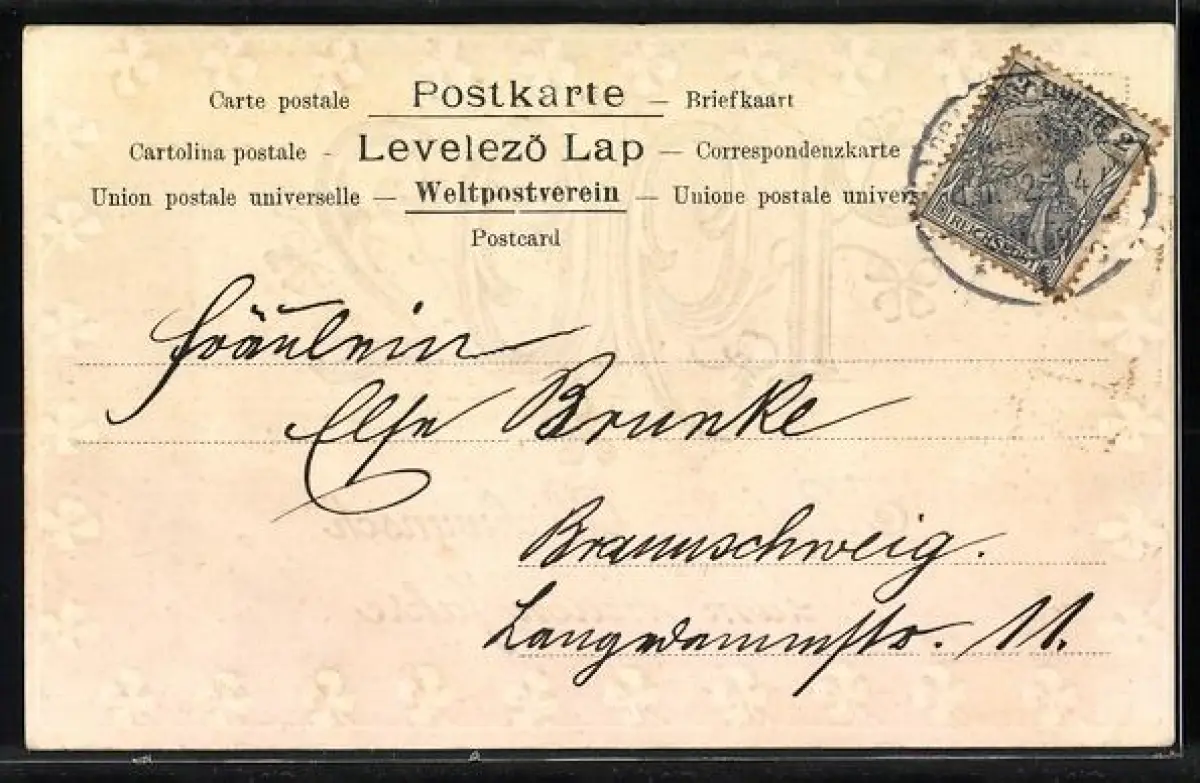 Carte postale — Postkarte — Briefkaart
Cartolina postale - Levelező Lap — Correspondenzkarte
Union postale universelle — Weltpostverein — Unione postale univers
Postcard
REICHSPOST
2
Fräulein
Else Brunke
Braunschweig.
Langedammstr. 11.